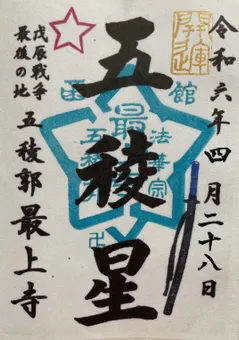 開運
令和六年四月二十八日
五稜星
函館
法華宗
最
五稜
卍
戊辰戦争
最後の地
五稜郭最上寺